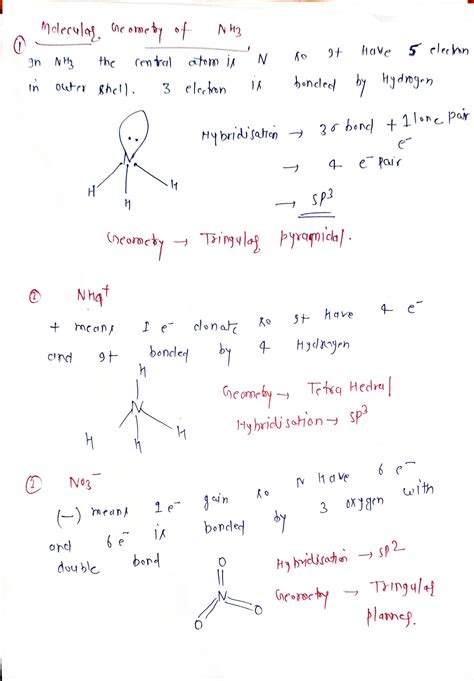 ① Moleculas Geometry of NH3
In NH3 the central atom is N so It Have 5 electron
in outer shell. 3 electron is bonded by Hydrogen
Hybridisation → 3σ bond + 1 lone pair e⁻
→ 4 e⁻ pair
→ sp3
N
H H H
Geometry → Tringulas pyramidal.
② NH4+
+ means 1 e⁻ donate so It have 4 e⁻
and It bonded by 4 Hydrogen
H
N
H H H
Geometry → Tetra Hedral
Hybridisation → sp3
③ NO3⁻
(−) means 1 e⁻ gain so N Have 6 e⁻
and 6 e⁻ is bonded by 3 oxygen with
double bond
Hybridisation → sp2
Geometry → Tringulas
planner.
O
N
O O